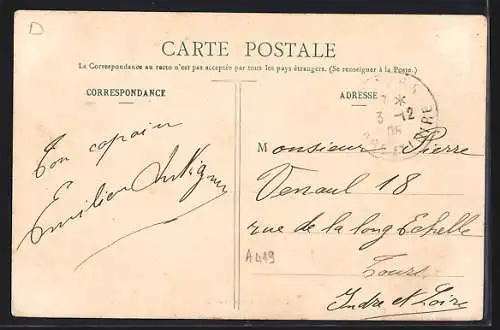 D
CARTE POSTALE
La Correspondance au recto n'est pas acceptée par tous les pays étrangers. (Se renseigner à la Poste.)
CORRESPONDANCE
ADRESSE
3 -12
Ton copain
Emilien
Monsieur Pierre
Venault 18
rue de la long Echelle
Tours
Indre et Loire
A449